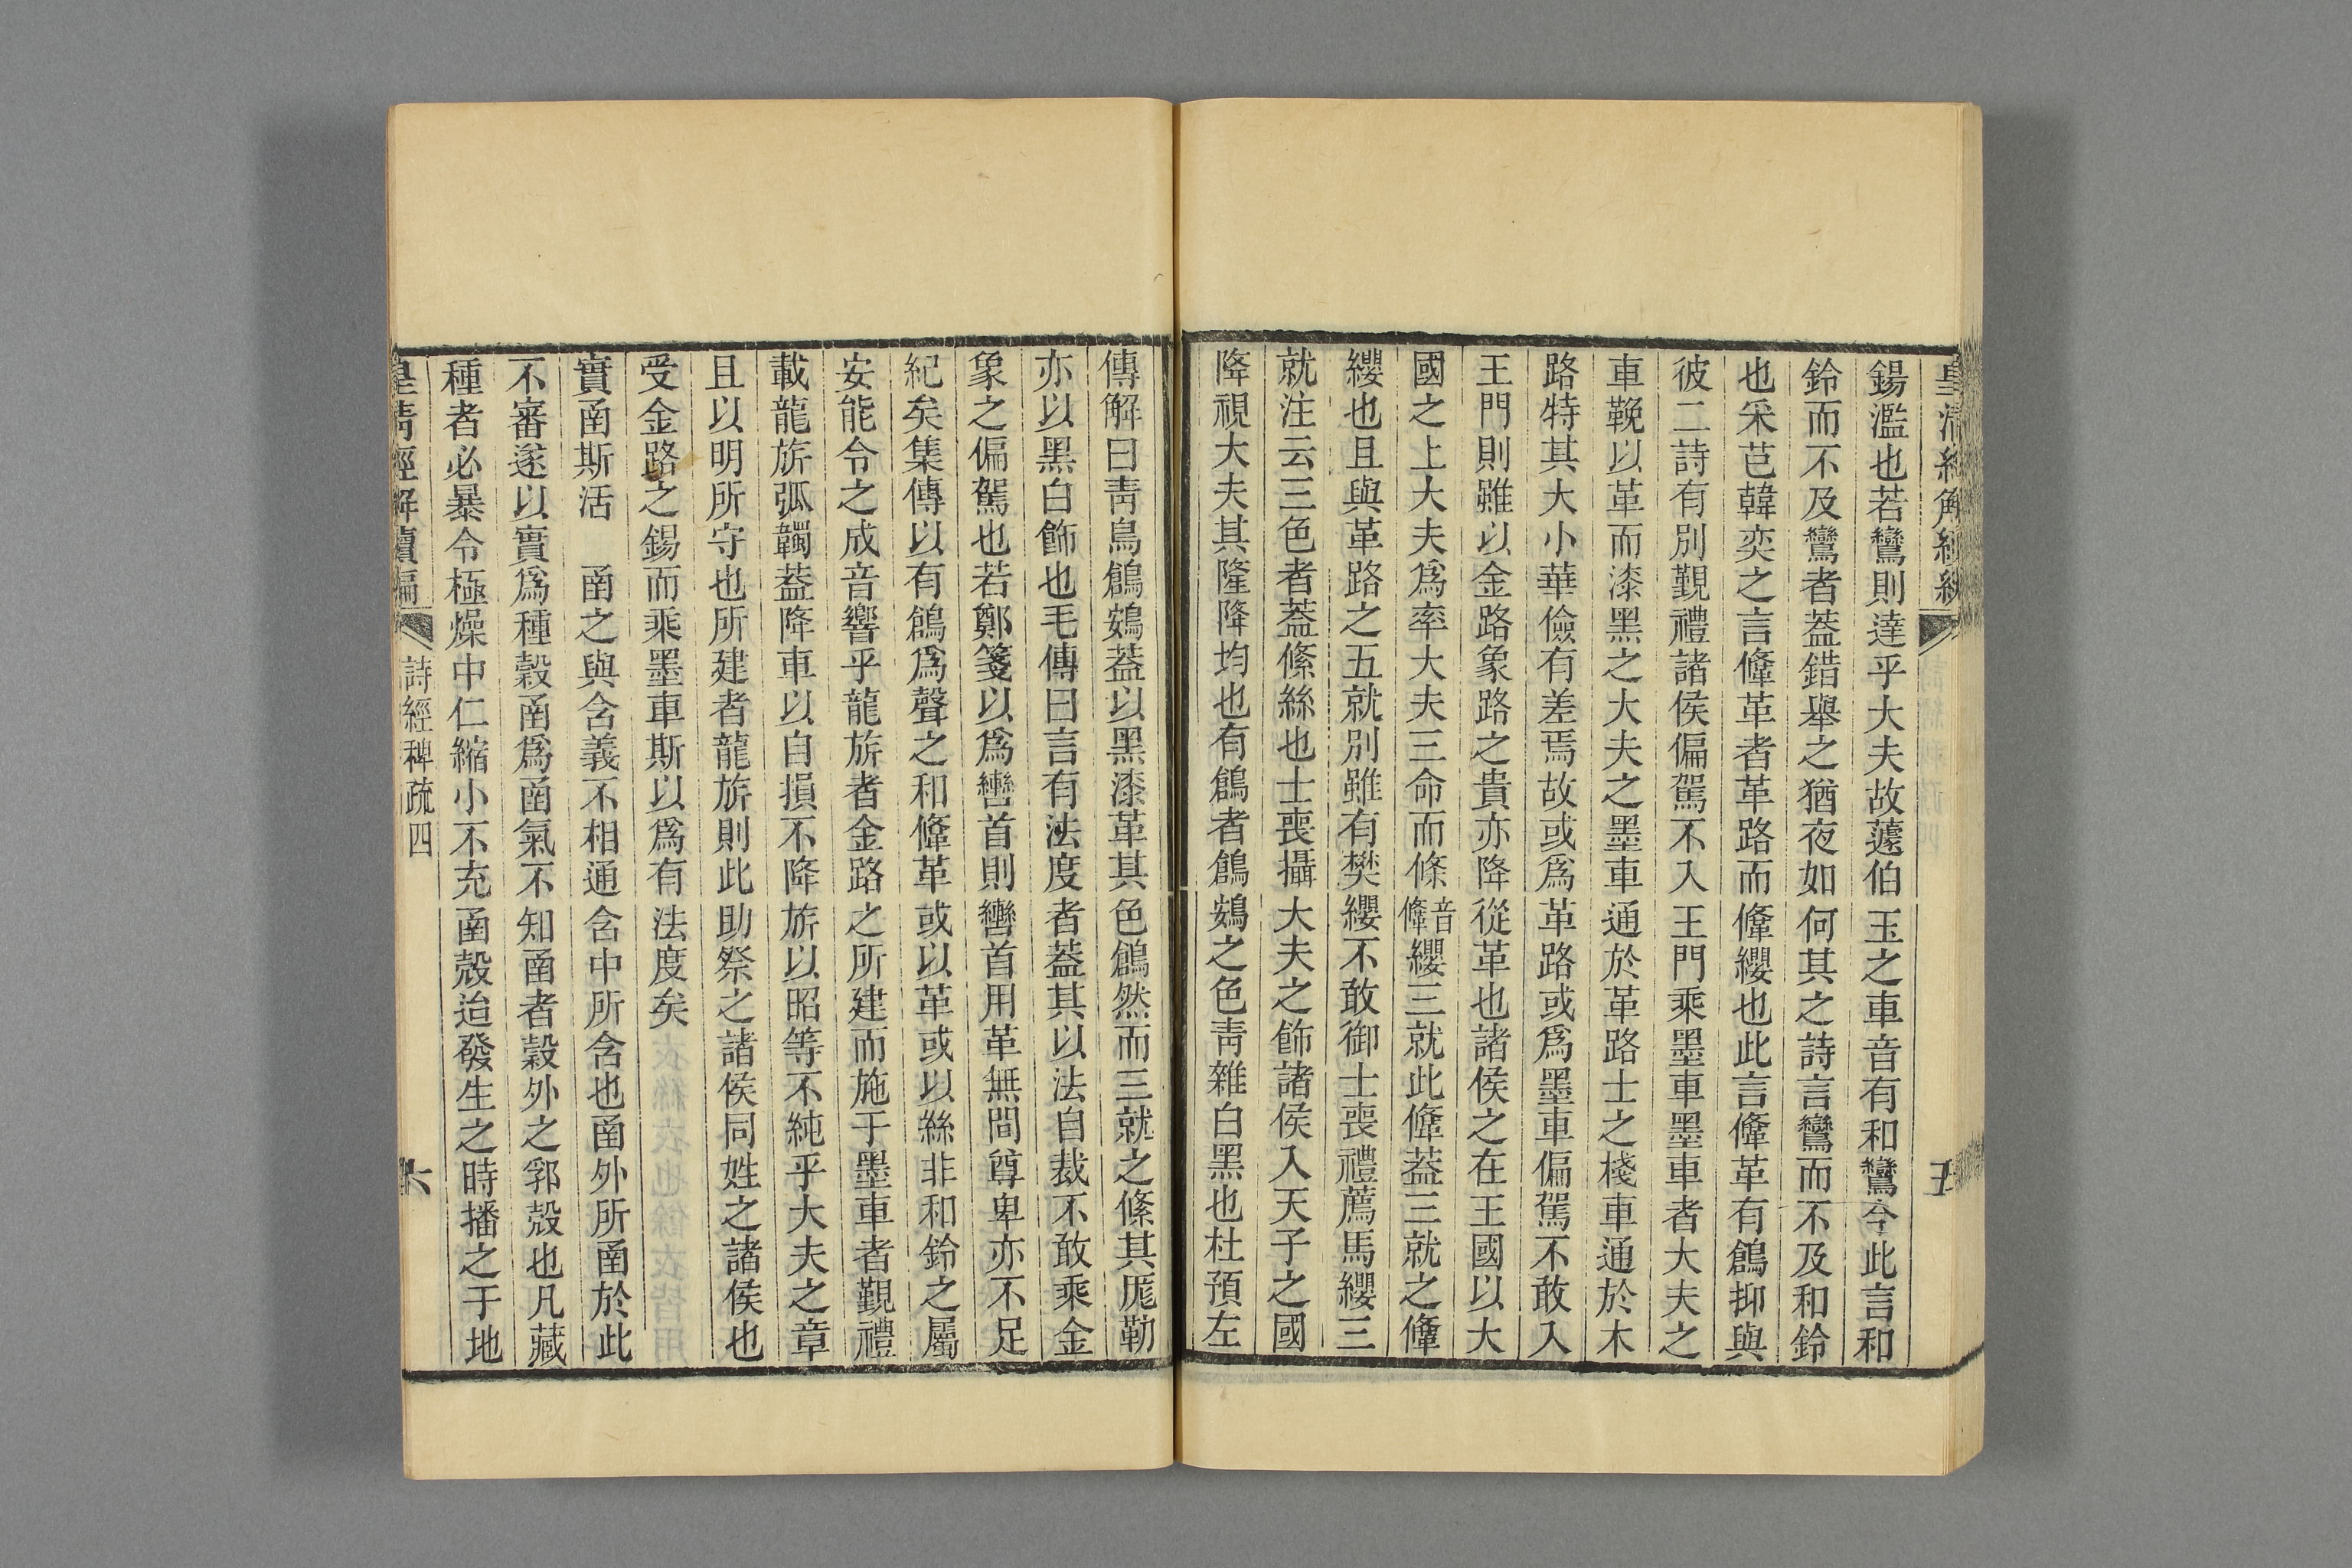 錫濫也若鸞則達乎大夫故蘧伯玉之車音有和鸞今此言和
鈴而不及鸞者葢錯舉之猶夜如何其之詩言鸞而不及和鈴
也采芑韓奕之言鞗革者革路而鞗纓也此言鞗革有鶬抑與
彼二詩有別覲禮諸侯偏駕不入王門乘墨車墨車者大夫之
車鞔以革而漆黑之大夫之墨車通於革路士之棧車通於木
路特其大小華儉有差焉故或爲革路或爲墨車偏駕不敢入
王門則雖以金路象路之貴亦降從革也諸侯之在王國以大
國之上大夫爲率大夫三命而條音鞗纓三就此鞗葢三就之鞗
纓也且與革路之五就別雖有樊纓不敢御士喪禮薦馬纓三
就注云三色者葢絛絲也士喪攝大夫之飾諸侯入天子之國
降視大夫其隆降均也有鶬者鶬鴳之色靑雜白黑也杜預左
傳解曰靑鳥鶬鴳葢以黑漆革其色鶬然而三就之絛其厖勒
亦以黑白飾也毛傳曰言有法度者葢其以法自裁不敢乘金
象之偏駕也若鄭箋以爲轡首則轡首用革無間尊卑亦不足
紀矣集傳以有鶬爲聲之和鞗革或以革或以絲非和鈴之屬
安能令之成音響乎龍旂者金路之所建而施于墨車者覲禮
載龍旂弧韣葢降車以自損不降旂以昭等不純乎大夫之章
且以明所守也所建者龍旂則此助祭之諸侯同姓之諸侯也
受金路之錫而乘墨車斯以爲有法度矣
實函斯活　函之與含義不相通含中所含也函外所函於此
不審遂以實爲種穀函爲函氣不知函者穀外之郛殼也凡藏
種者必暴令極燥中仁縮小不充函殼迨發生之時播之于地
皇清經解續編
詩經稗疏四
六